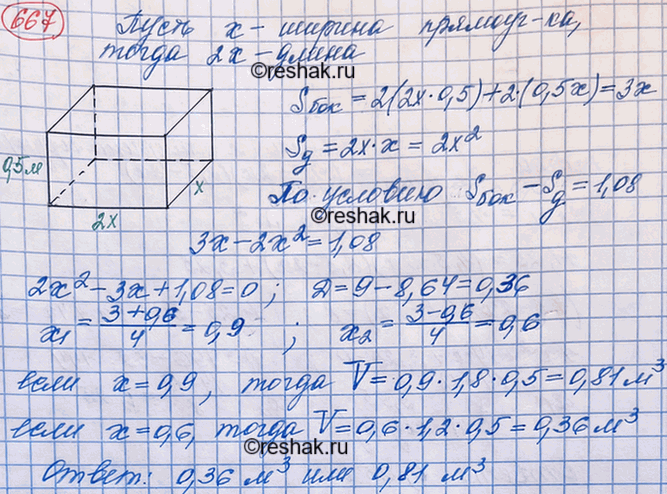 667 Пусть x - ширина прямоуг-ка,
тогда 2x - длина
©reshak.ru
Sбок = 2(2x·0,5)+2·(0,5x)=3x
Sд = 2x·x = 2x²
0,5м
x
2x
По условию Sбок - Sд = 1,08
©reshak.ru
3x-2x²=1,08
©reshak.ru
2x²-3x+1,08=0; D=9-8,64=0,36
x₁ = (3+0,6)/4 = 0,9 ; x₂ = (3-0,6)/4 = 0,6
©reshak.ru
если x=0,9, тогда V=0,9·1,8·0,5=0,81 м³
если x=0,6, тогда V=0,6·1,2·0,5=0,36 м³
©reshak.ru
Ответ: 0,36 м³ или 0,81 м³